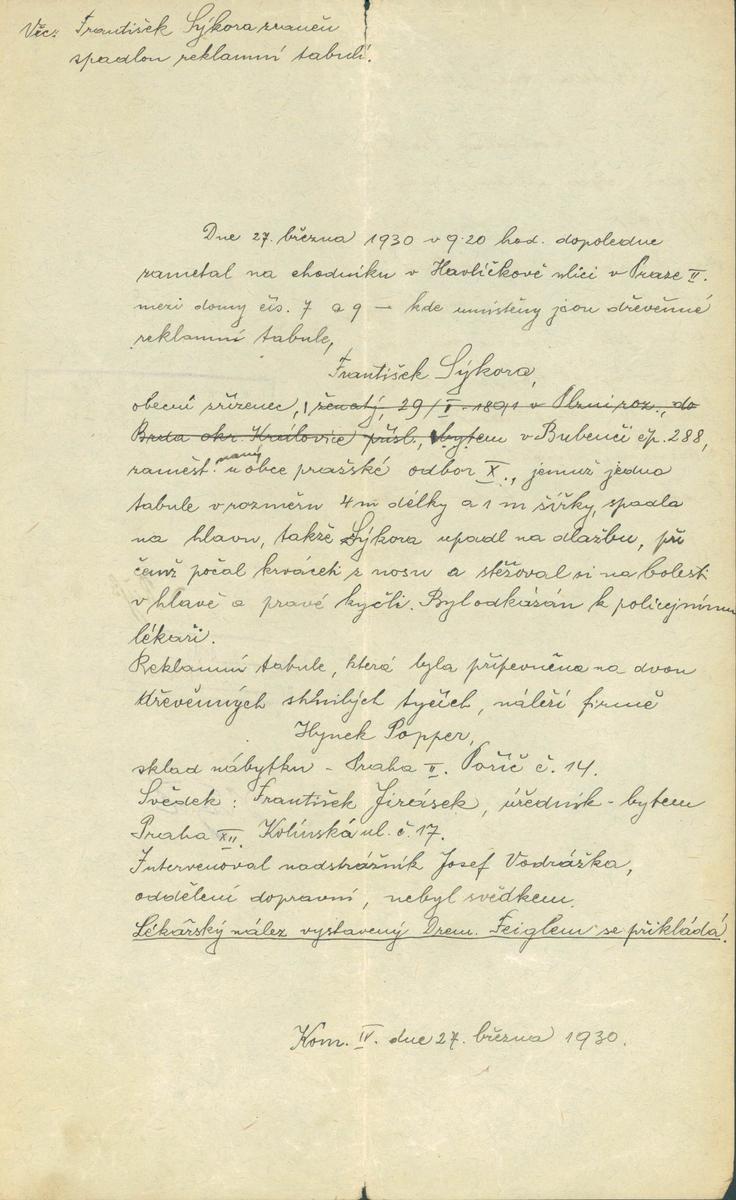 Věc: František Sýkora zraněn
spadlou reklamní tabulí.
Dne 27. března 1930 v 9.20 hod. dopoledne
zametal na chodníku v Havlíčkově ulici v Praze II.
mezi domy čís. 7 a 9 — kde umístěny jsou dřevěnné
reklamní tabule,
František Sýkora,
obecní zřízenec, ženatý, 29/I. 1891 v Plzni roz., do
Brda okr. Kralovice přísl., bytem v Bubenči čp. 288,
zaměst. naný u obce pražské odbor X., jemuž jedna
tabule v rozměru 4 m délky a 1 m šířky, spadla
na hlavu, takže Sýkora upadl na dlažbu, při
čemž počal krváceti z nosu a stěžoval si na bolesti
v hlavě a pravé kyčli. Byl odkázán k policejnímu
lékaři.
Reklamní tabule, která byla připevněna na dvou
dřevěnných shnilých tyčích, náleží firmě
Hynek Popper,
sklad nábytku – Praha II. Poříč č. 14.
Svědek: František Jirásek, úředník – bytem
Praha XII. Kolínská ul. č. 17.
Intervenoval nadstrážník Josef Vodrážka,
oddělení dopravní, nebyl svědkem.
Lékářský nález vystavený Drem. Feiglem se přikládá.
Kom. IV. dne 27. března 1930.